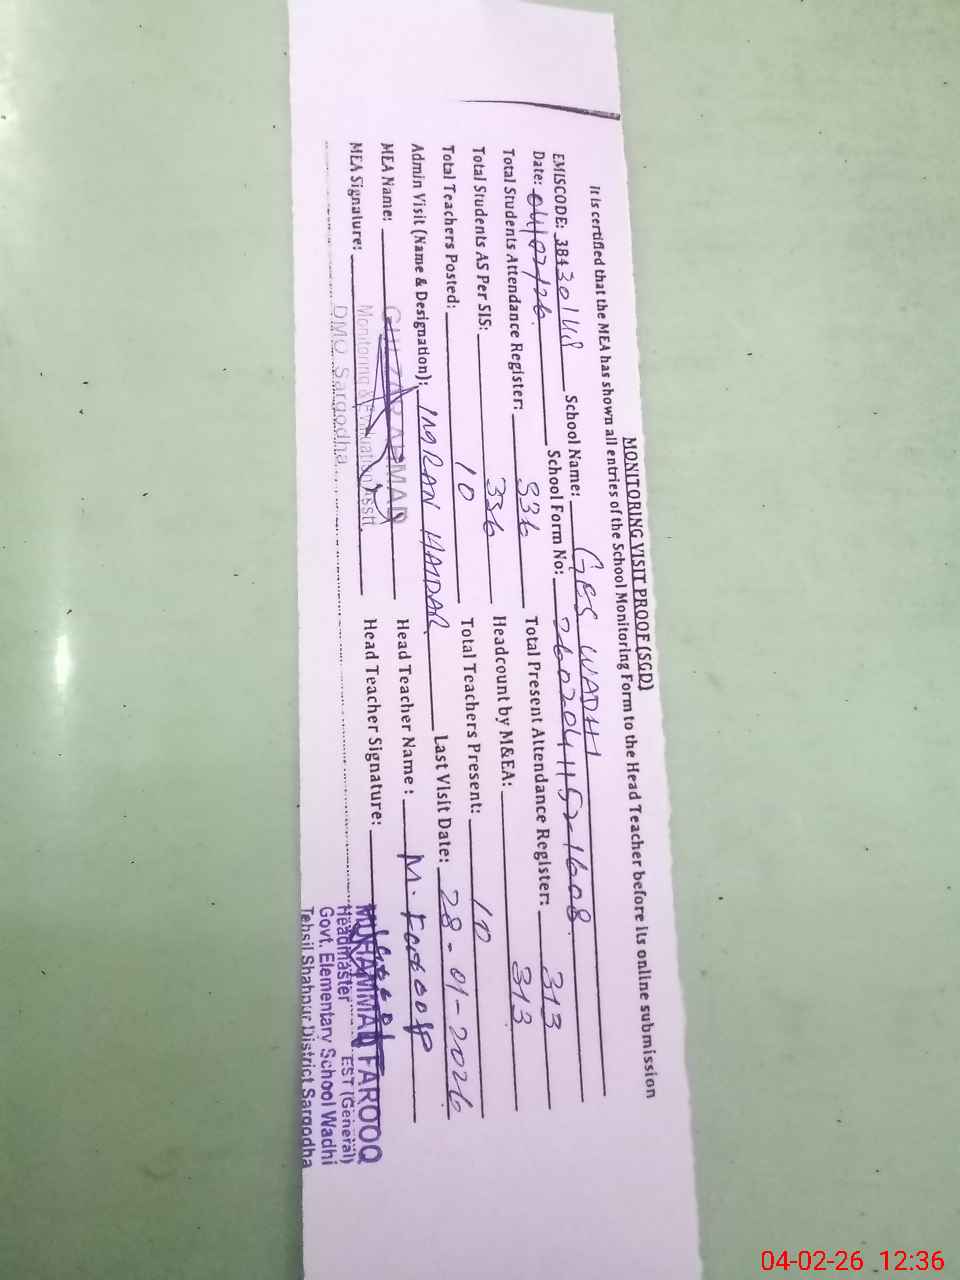 MONITORING VISIT PROOF (SGD)
It is certified that the MEA has shown all entries of the School Monitoring Form to the Head Teacher before its online submission
EMISCODE: 38430148 School Name: GES WADHI
Date: 04/02/26. School Form No: 2602041152-1608.
Total Students Attendance Register: 336 Total Present Attendance Register: 313
Total Students AS Per SIS: 336 Headcount by M&EA: 313
Total Teachers Posted: 10 Total Teachers Present: 10
Admin Visit (Name & Designation): IMRAN HAIDAR Last Visit Date: 28-01-2026
MEA Name: GULZAR AHMAD Head Teacher Name: M. Farooq
MEA Signature: Head Teacher Signature:
Monitoring & Evaluation Asstt.
DMO Sargodha
MUHAMMAD FAROOQ
Headmaster EST (General)
Govt. Elementary School Wadhi
Tehsil Shahpur District Sargodha
04-02-26 12:36